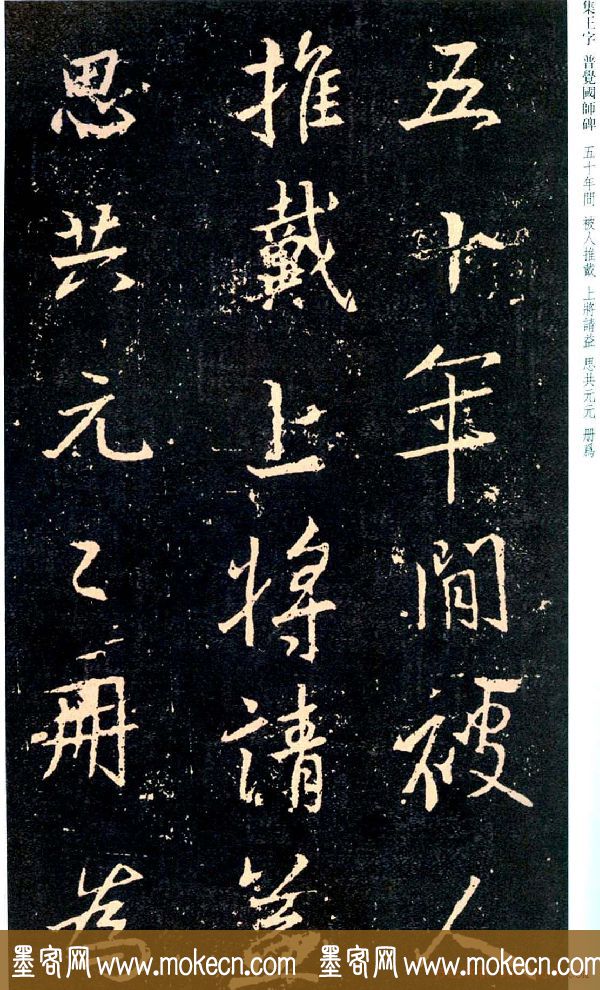 集王字 普覺國師碑 五十年間 被人推戴 上將請益 思共元元 册爲
五十年間被人
推戴上將請益
思共元〻冊為
墨客网 www.mokecn.com 墨客网 www.mokecn.com